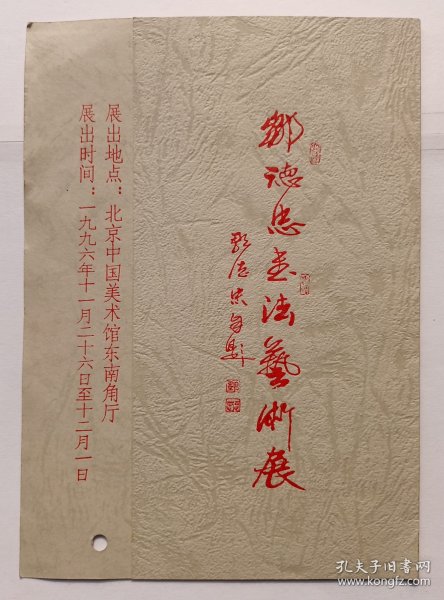 邹德忠书法藝術展
邹德忠自题
展出地点：北京中国美术馆东南角厅
展出时间：一九九六年十一月二十六日至十二月一日
孔夫子旧书网
www.kongfz.com